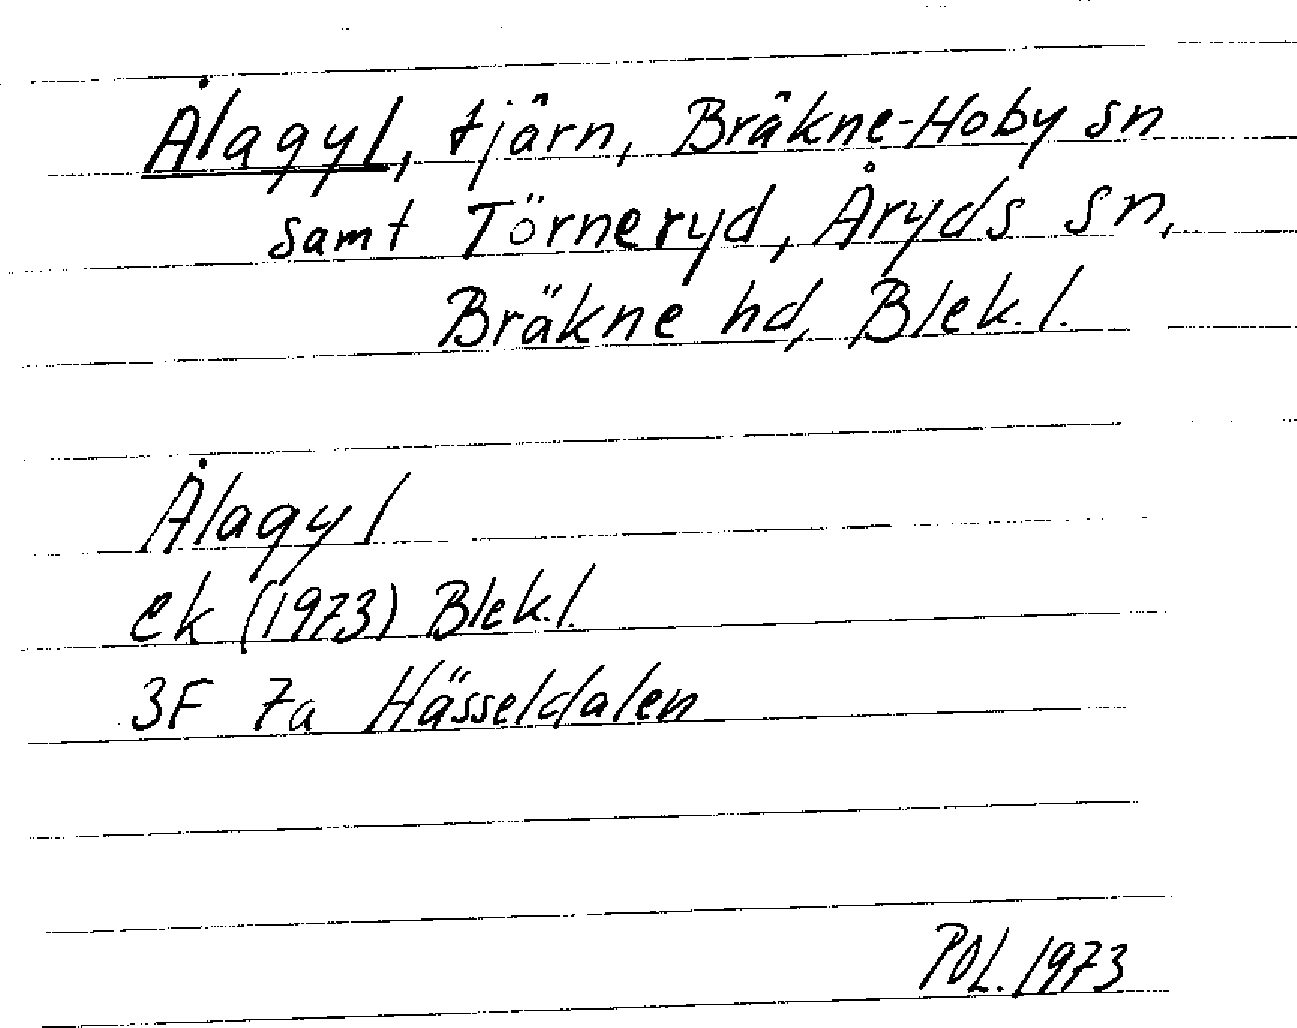 Ålagyl, tjärn, Bräkne-Hoby sn
samt Törneryd, Åryds sn,
Bräkne hd, Blek. l.
Ålagyl
ek (1973) Blek. l.
3F 7a Hässeldalen
POL. 1973